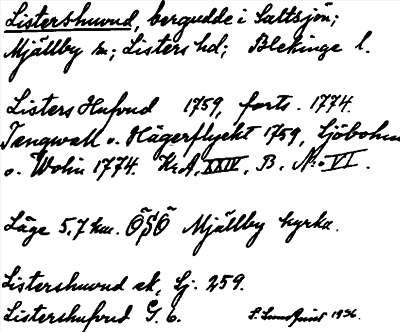 Listershuvud, bergudde i Saltsjön;
Mjällby sn; Listers hd; Blekinge l.
Listers Hufvud 1759, forts. 1774.
Tengwall o. Hägerflykt 1759, Sjöbohm
o. Wolin 1774. Kr. A. XXIV, B. No VI.
Läge 5,7 km. ÖSÖ Mjällby kyrka.
Listershuvud ek, Sj. 259.
Listershufvud G. 6.
1936.